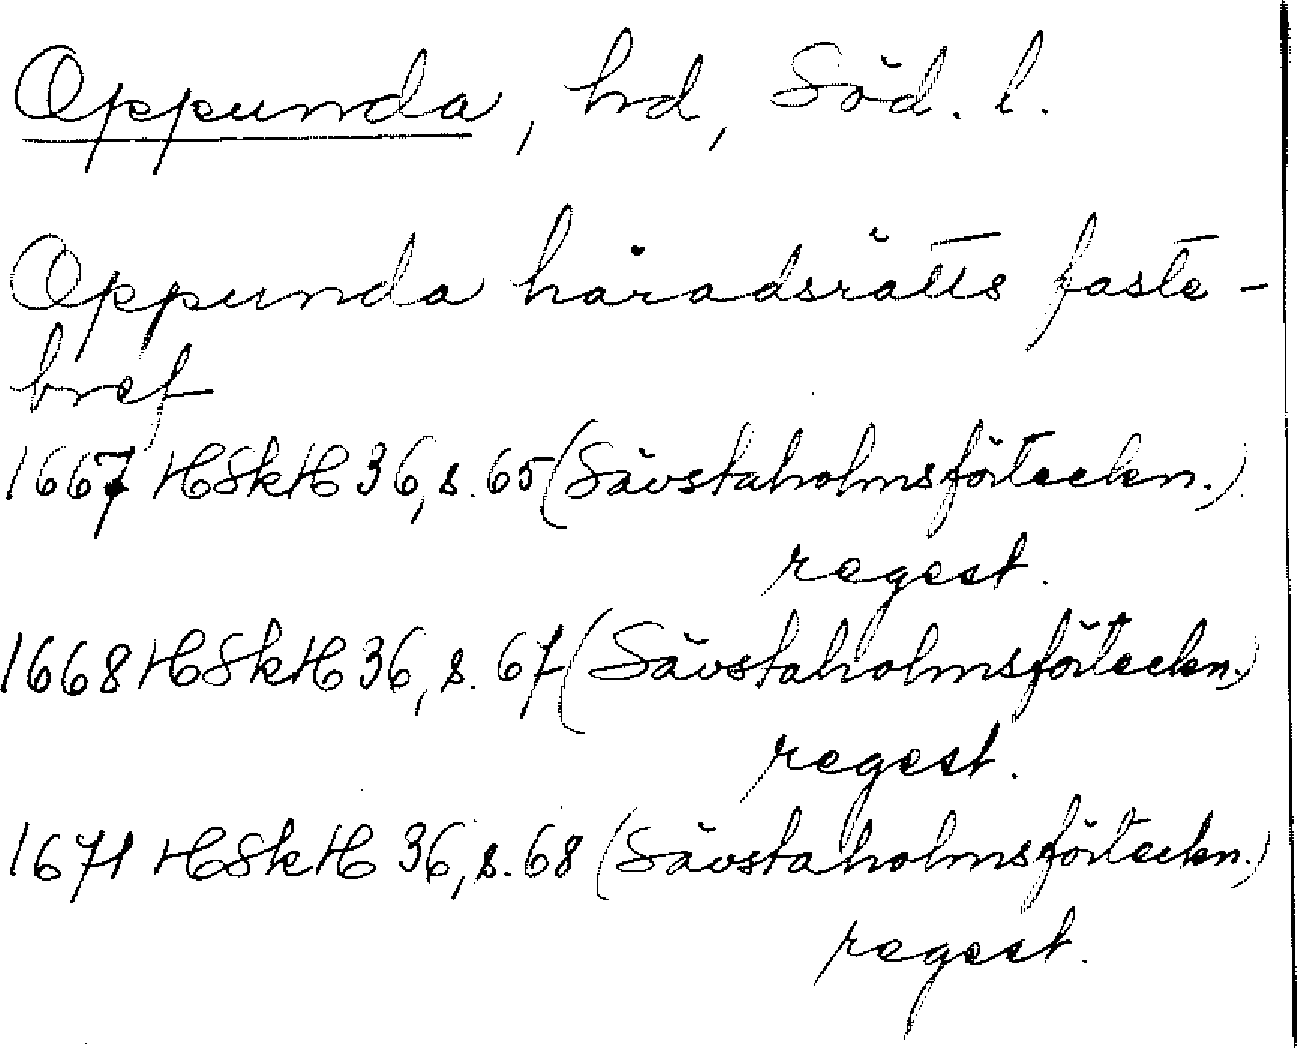 Oppunda, hd, Söd. l.
Oppunda häradsrätts faste-
bref
1667 HSkH 36, s. 65 (Sävstaholmsförteckn.)
regest.
1668 HSkH 36, s. 67 (Sävstaholmsförteckn.)
regest.
1671 HSkH 36, s. 68 (Sävstaholmsförteckn.)
regest.